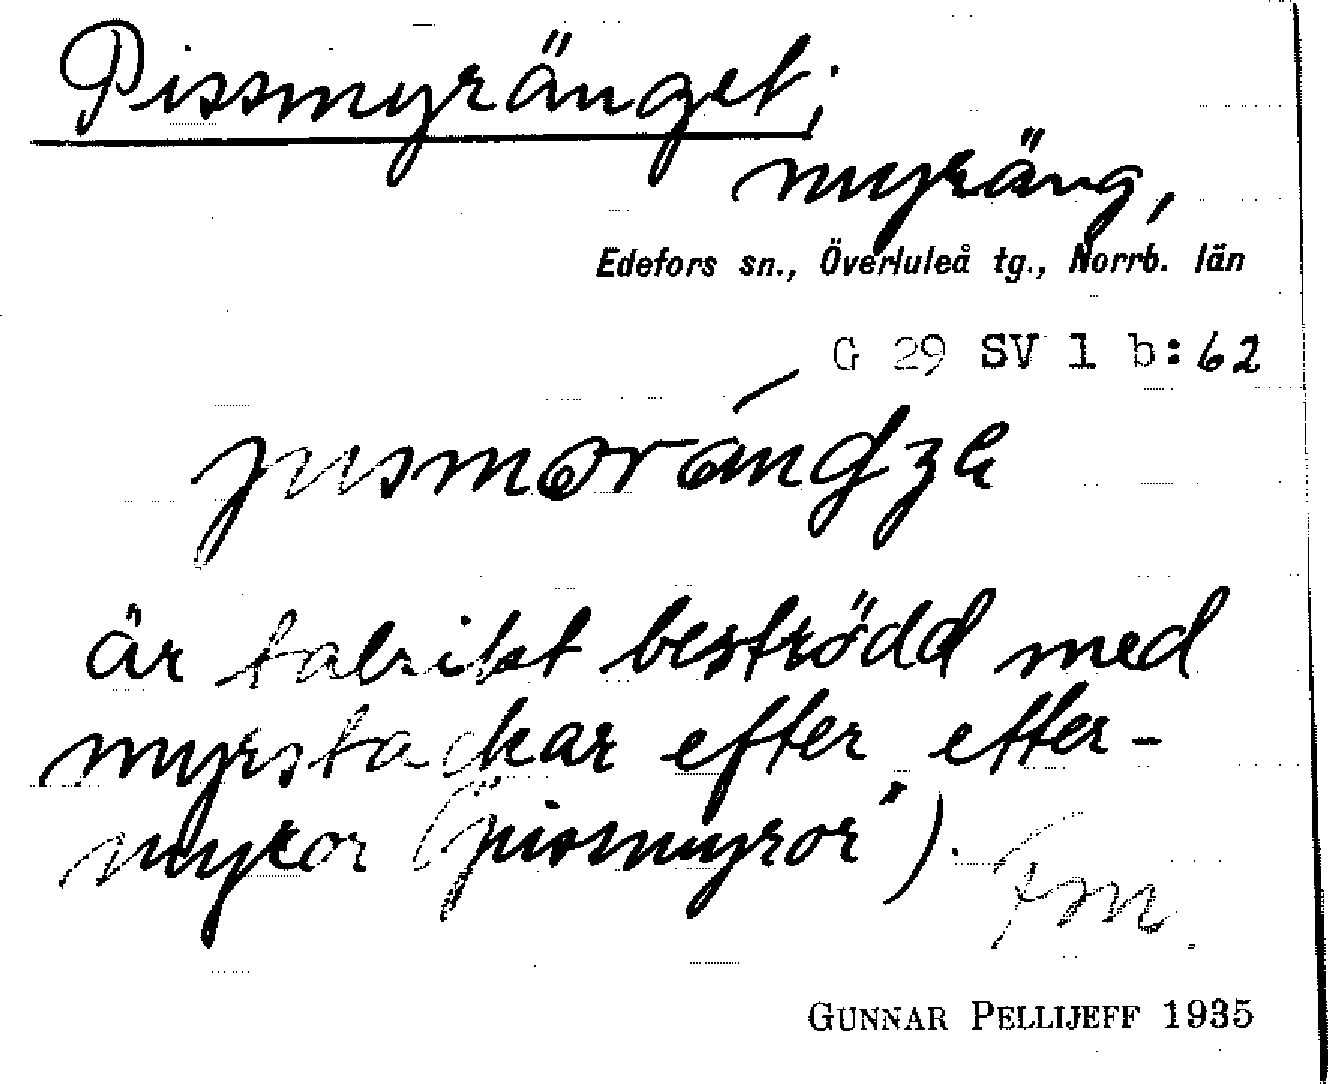 Pissmyränget;
myräng,
Edefors sn., Överluleå tg., Norrb. län
G 29 SV 1 b:62
är talrikt beströdd med
myrstackar efter etter-
myror ("pissmyror").
Fm.
GUNNAR PELLIJEFF 1935